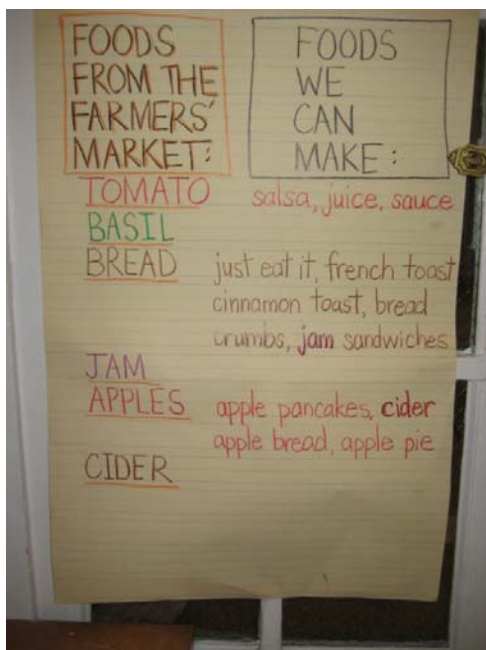 FOODS
FROM THE
FARMERS'
MARKET:
FOODS
WE
CAN
MAKE:
TOMATO salsa, juice, sauce
BASIL
BREAD just eat it, french toast
cinnamon toast, bread
crumbs, jam sandwiches
JAM
APPLES apple pancakes, cider
apple bread, apple pie
CIDER